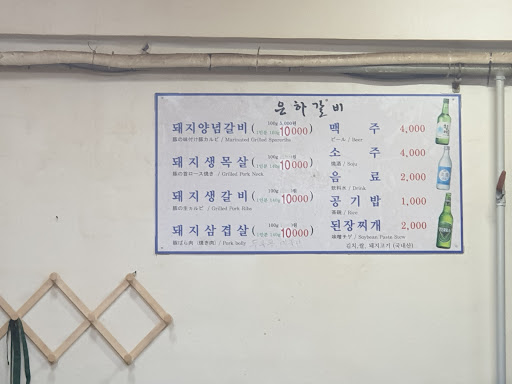 은하갈비
돼지양념갈비 (100g 5,000원 1인분 180g 10000)
豚の味付け骨カルビ / Marinated Grilled Spareribs
돼지생목살 (100g 1인분 140g 10000)
豚の首ロース焼き / Grilled Pork Neck
돼지생갈비 (100g 1인분 180g 10000)
豚の生カルビ / Grilled Pork Ribs
돼지삼겹살 (100g 1인분 140g 10000)
豚ばら肉 (焼き肉) / Pork belly
맥주 4,000
ビール / Beer
소주 4,000
焼酒 / Solu
음료 2,000
飲料水 / Drink
공기밥 1,000
茶碗 / Rice
된장찌개 2,000
味噌チゲ / Soybean Paste Stew
김치,쌀, 돼지고기 (국내산)